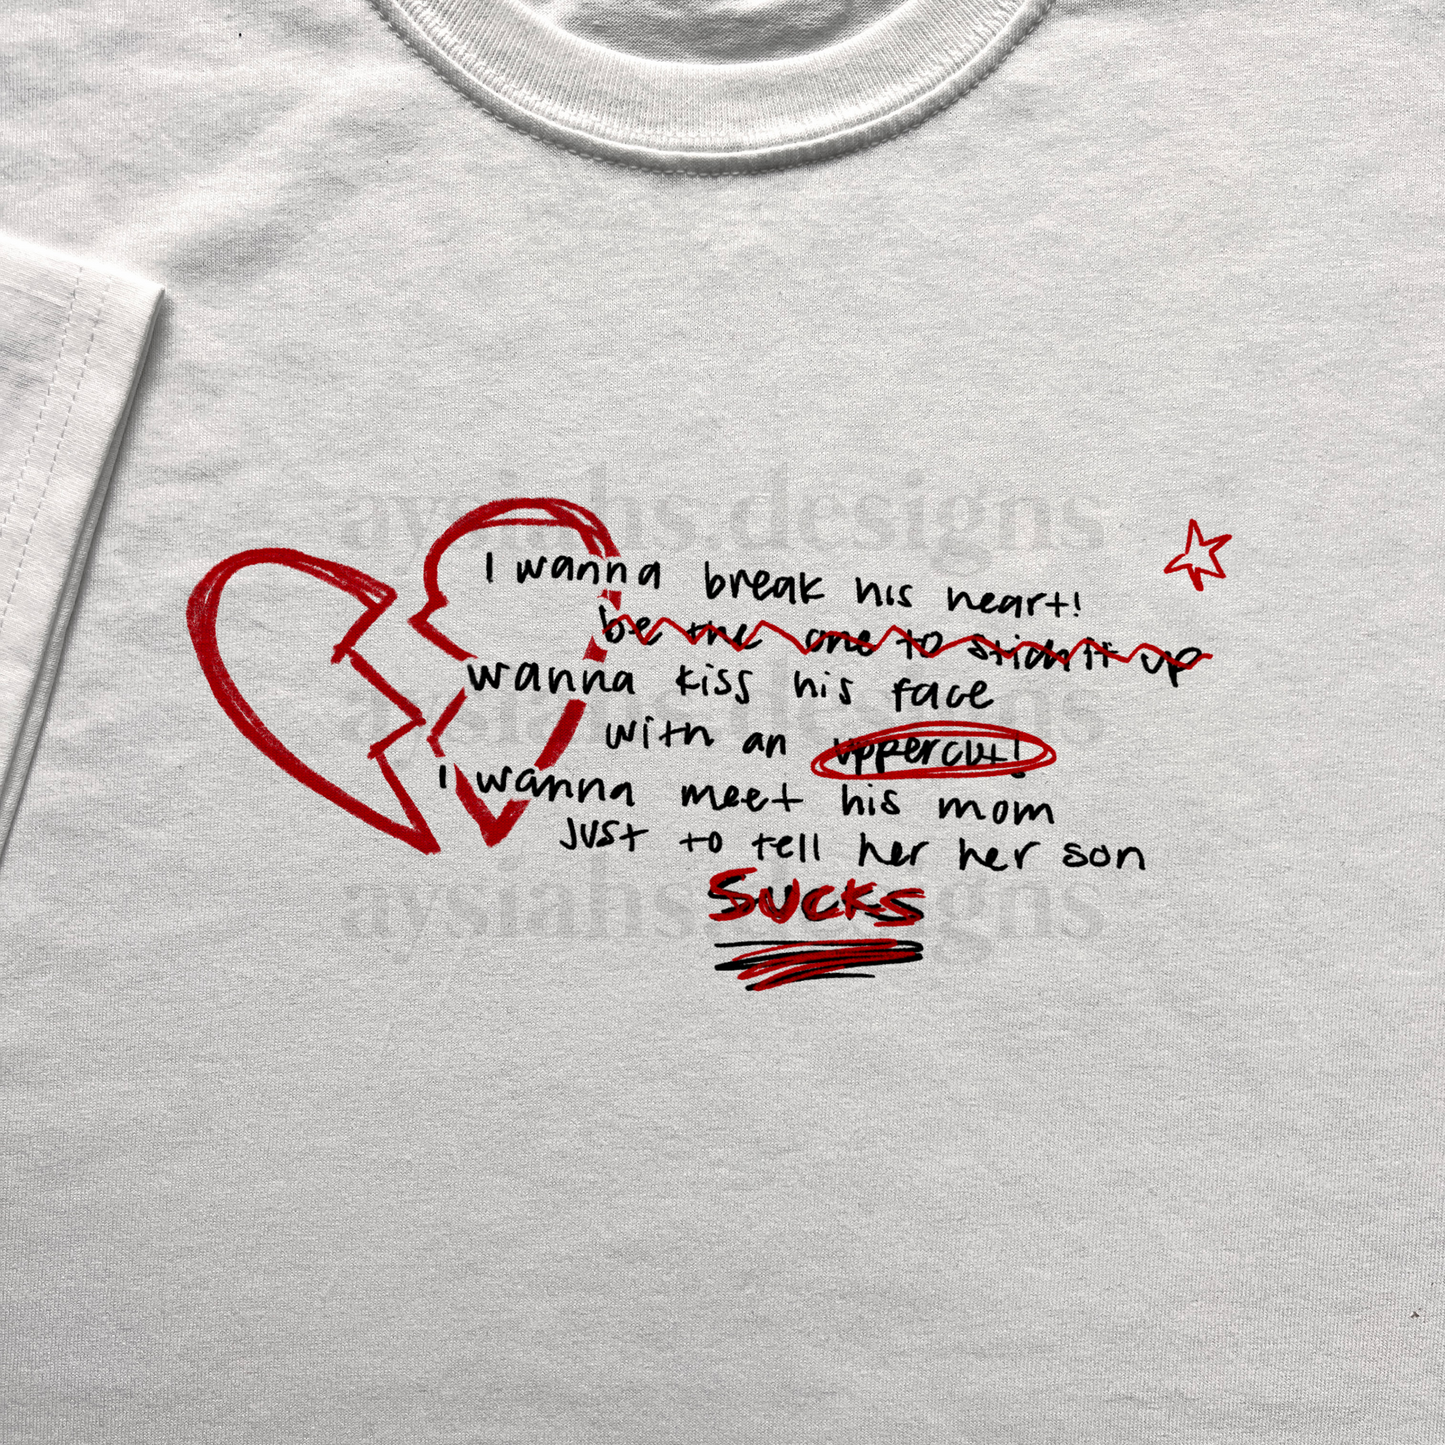 aysiahs.designs
I wanna break his heart!
be the one to stich it up
wanna kiss his face
aysiahs.designs
with an uppercut!
I wanna meet his mom
just to tell her her son
aysiahs.designs
SUCKS